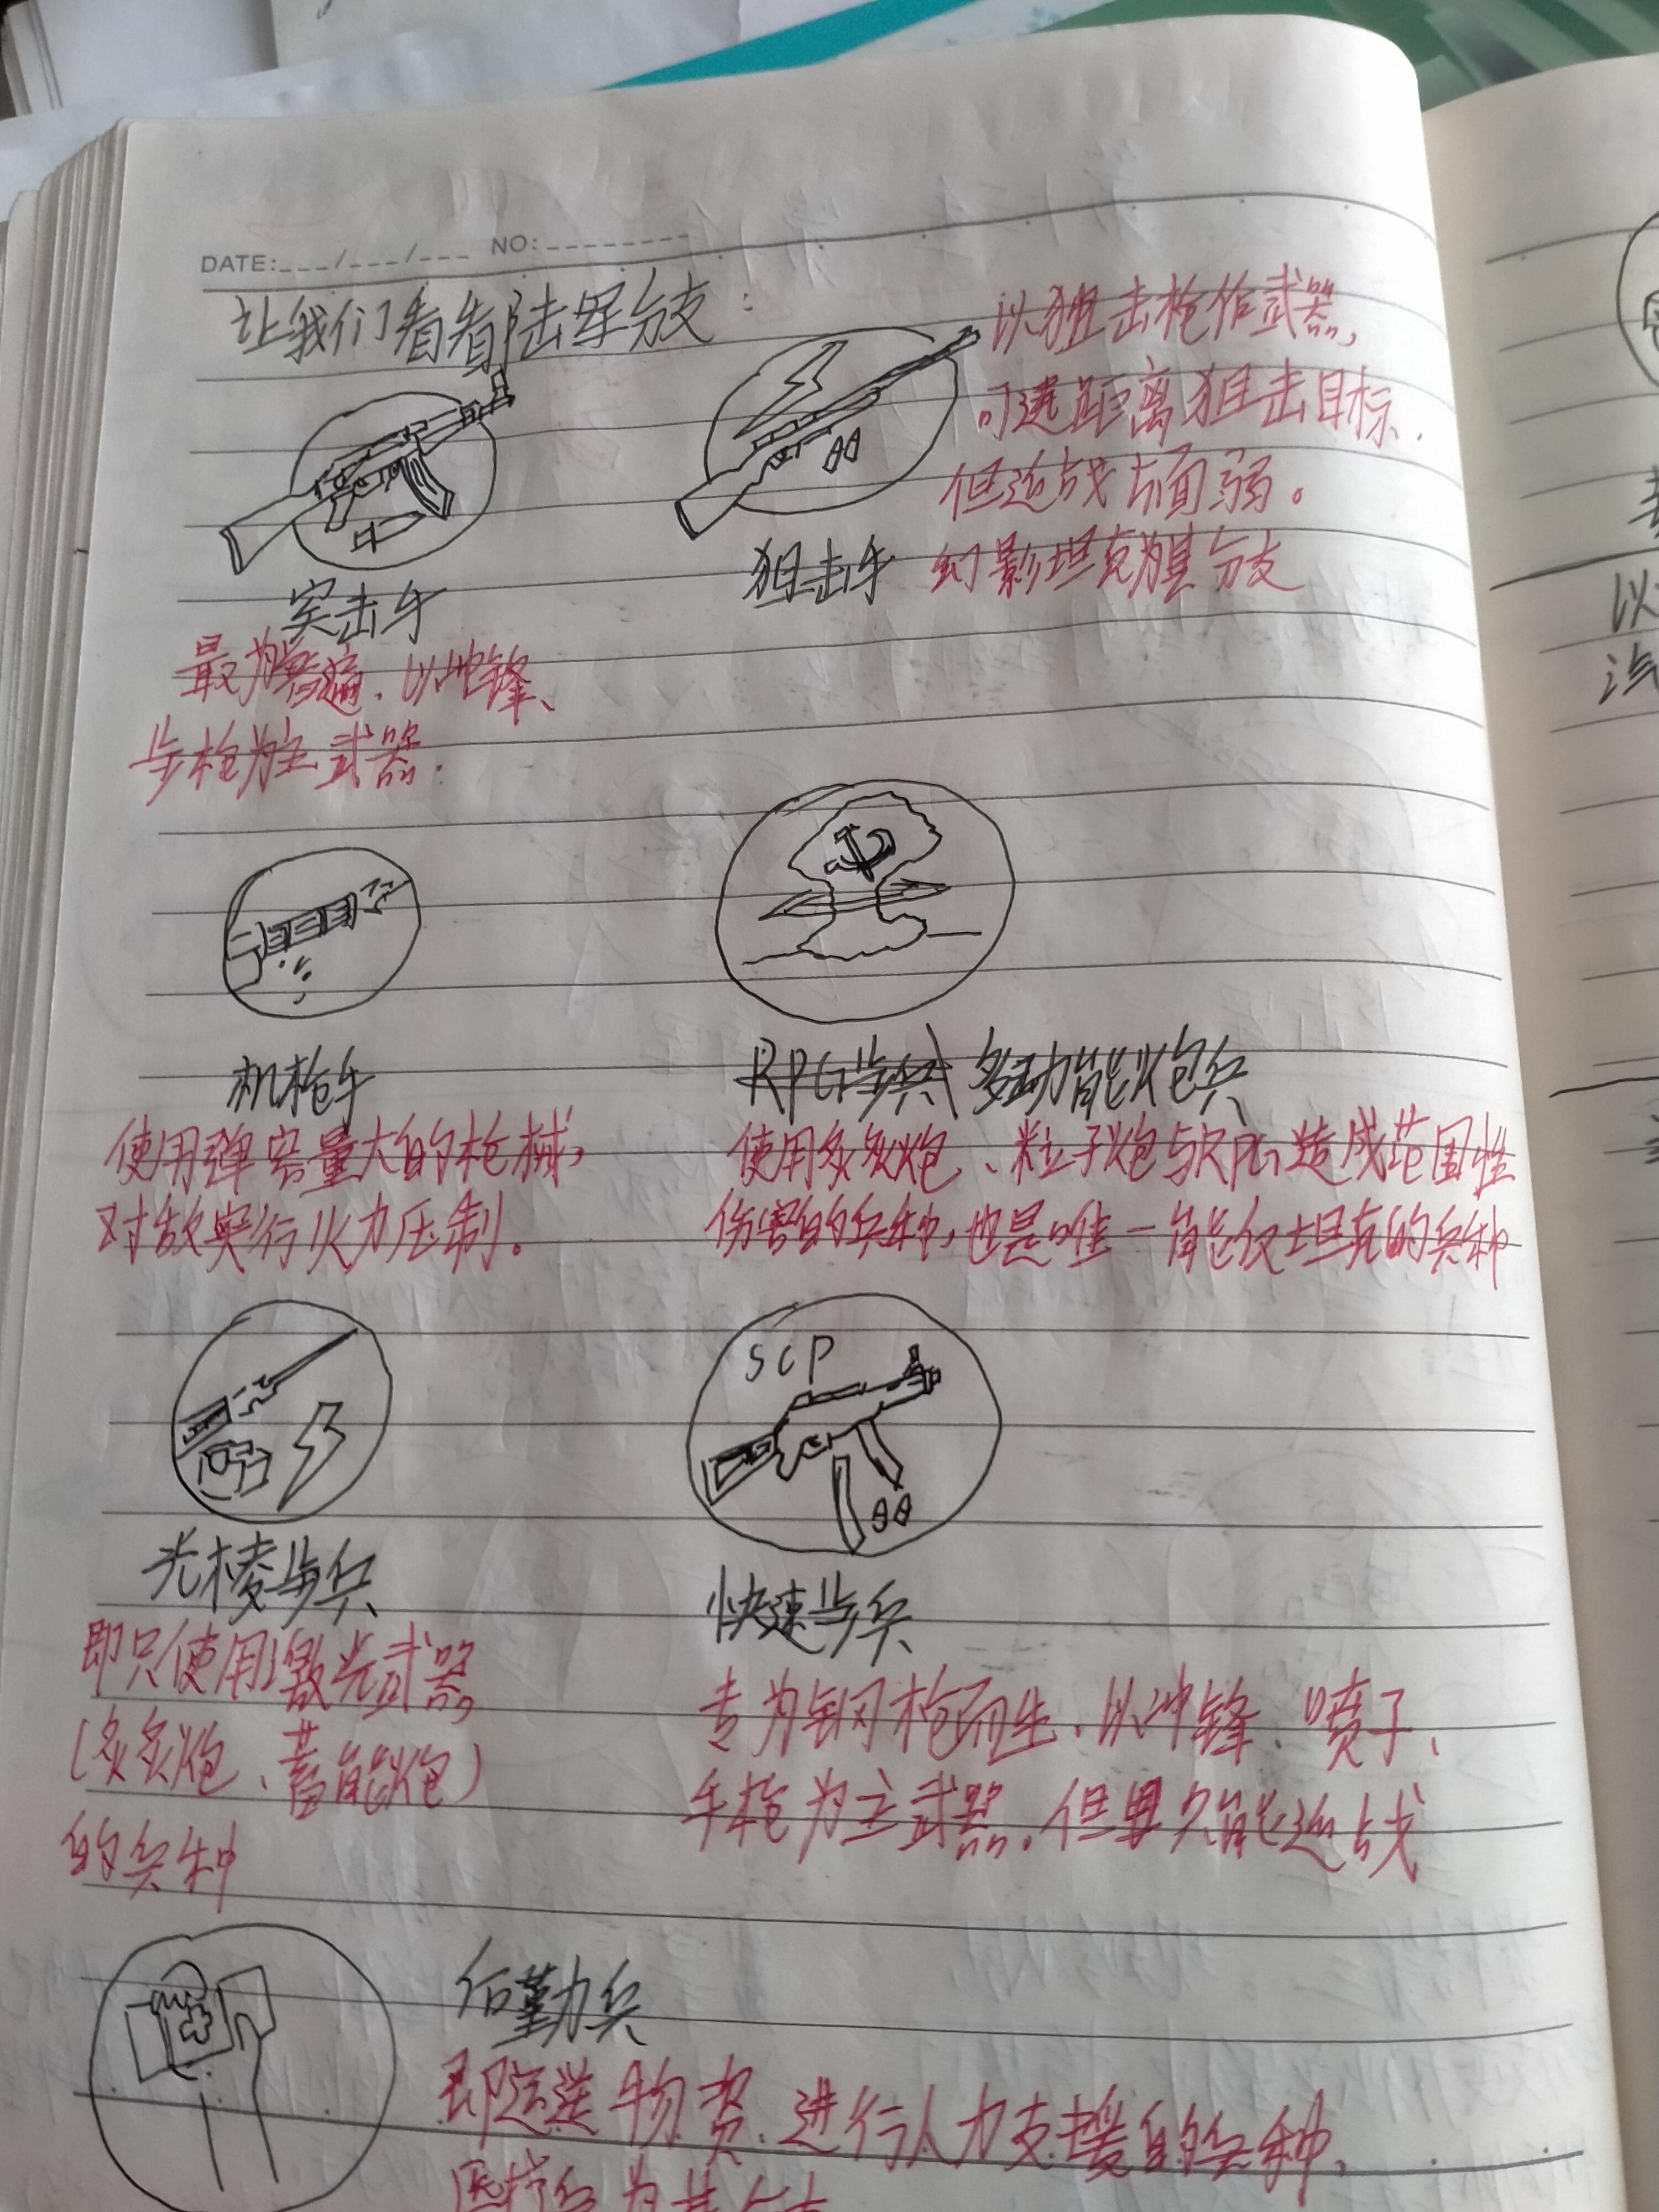 DATE:___/___/___ NO:_________
让我们看看陆军分支：
突击手
最为普遍、以冲锋、
步枪为主武器.
以狙击枪作武器,
可远距离狙击目标.
但近战方面弱。
狙击手 幻影坦克为其分支
机枪手
使用弹容量大的枪械,
对敌实行火力压制。
RPG步兵 多功能炮兵
使用炙炙炮、粒子炮与RPG造成范围性
伤害的兵种,也是唯一能反坦克的兵种
光棱步兵
即只使用激光武器
(炙炙炮、蓄能炮)
的兵种
SCP
快速步兵
专为钢枪而生、以冲锋、喷子、
手枪为主武器.但只能近战
后勤兵
即运送物资、进行人力支援的兵种,
医疗兵为其分支
以
汽